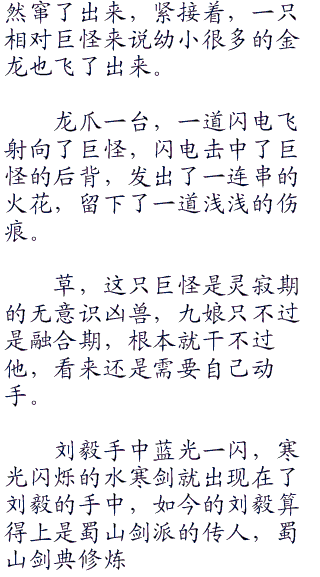 然窜了出来，紧接着，一只
相对巨怪来说幼小很多的金
龙也飞了出来。
龙爪一台，一道闪电飞
射向了巨怪，闪电击中了巨
怪的后背，发出了一连串的
火花，留下了一道浅浅的伤
痕。
草，这只巨怪是灵寂期
的无意识凶兽，九娘只不过
是融合期，根本就干不过
他，看来还是需要自己动
手。
刘毅手中蓝光一闪，寒
光闪烁的水寒剑就出现在了
刘毅的手中，如今的刘毅算
得上是蜀山剑派的传人，蜀
山剑典修炼